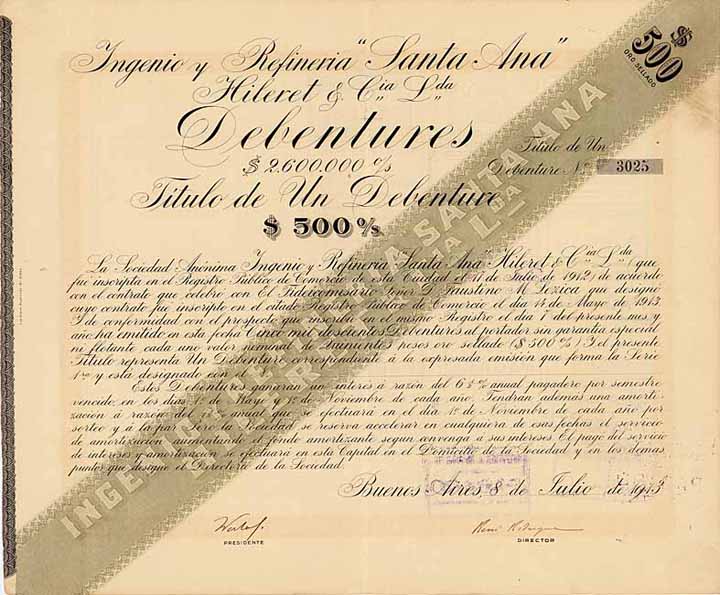 Ingenio y Refineria "Santa Ana"
Hileret & Cia Lda
Debentures
$ 2.600.000 o/s
Titulo de Un Debenture
$ 500 o/s
$ 500
ORO SELLADO
Titulo de Un
Debenture No 3025
La Sociedad Anónima Ingenio y Refineria "Santa Ana" Hileret & Cia Lda (que
fue inscripta en el Registro Público de Comercio de esta Ciudad el 11 de Julio de 1912) de acuerdo
con el contrato que celebro con El Fideicomisario Señor D. Faustino M. Lezica que designó
cuyo contrato fue inscripto en el citado Registro Público de Comercio el dia 14 de Mayo de 1913
y de conformidad con el prospecto que inscribio en el mismo Registro el dia 1o del presente mes y
año ha emitido en esta fecha Cinco mil doscientos Debentures al portador sin garantia especial
ni flotante cada uno valor nominal de Quinientos pesos oro sellado ($ 500 o/s) y el presente
Titulo representa Un Debenture correspondiente á la expresada emisión que forma la Serie
1ra y esta designado con el
Estos Debentures ganarán un interes á razón del 6 ½ % anual pagadero por semestre
vencido en los dias 1o de Mayo y 1o de Noviembre de cada año. Tendrán además una amorti-
zacion á razón del 1% anual que se efectuará en el dia 1o de Noviembre de cada año por
sorteo y á la par pero la Sociedad se reserva acelerar en cualquiera de esas fechas el servicio
de amortización aumentando el fondo amortizante segun convenga a sus intereses. El pago del servicio
de intereses y amortización se efectuará en esta Capital en el Domicilio de la Sociedad y en los demas
puntos que designe el Directorio de la Sociedad
Buenos Aires 8 de Julio de 1913
PRESIDENTE
DIRECTOR